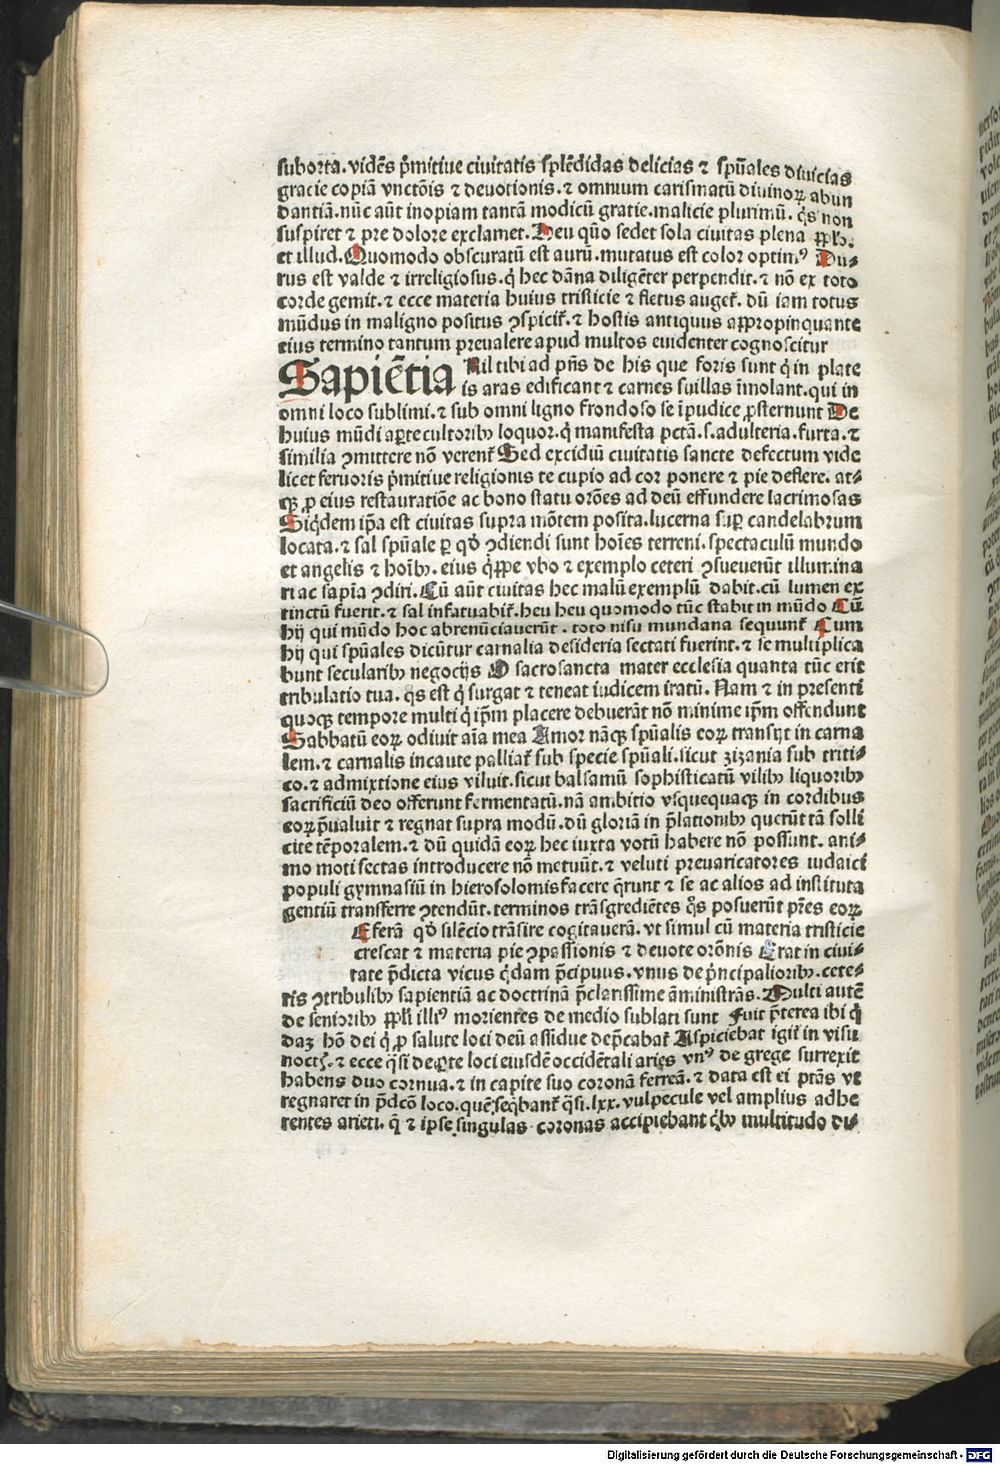 suborta. vidẽs p̃mitiue ciuitatis splẽdidas delicias ⁊ spũales diuicias
gracie copiã vnctõis ⁊ deuotionis. ⁊ omnium carismatũ diuinoꝝ abun
dantiã. nũc aũt inopiam tantã modicũ gratie. malicie plurimũ. q̃s non
suspiret ⁊ pre dolore exclamet. Heu quõ sedet sola ciuitas plena ꝓꝑlo.
et illud. Quomodo obscuratũ est aurũ. mutatus est color optimꝰ Du⸗
rus est valde ⁊ irreligiosus. q̇ hec dãna diligẽter perpendit. ⁊ nõ ex toto
corde gemit. ⁊ ecce materia huius tristicie ⁊ fletus auget̃. dũ iam totus
mũdus in maligno positus ꝯspicit̃. ⁊ hostis antiquus appropinquante
eius termino tantum preualere apud multos euidenter cognoscitur
Sapiẽtia Nil tibi ad p̃ns de his que foris sunt q̇ in plate
is aras edificant ⁊ carnes suillas ĩmolant. qui in
omni loco sublimi. ⁊ sub omni ligno frondoso se ĩpudice ꝓsternunt De
huius mũdi aꝑte cultoribꝰ loquor. q̇ manifesta pctã. s. adulteria. furta. ⁊
similia ꝯmittere nõ verent̃ Sed excidiũ ciuitatis sancte defectum vide
licet feruoris p̃mitiue religionis te cupio ad cor ponere ⁊ pie deflere. at⸗
qꝫ ꝓ eius restauratiõe ac bono statu orões ad deũ effundere lacrimosas
Siq̇dem ip̃a est ciuitas supra mõtem posita. lucerna suꝑ candelabrum
locata. ⁊ sal spũale ꝑ qđ ꝯdiendi sunt hoĩes terreni. spectaculũ mundo
et angelis ⁊ hoĩbꝰ. eius q̇ppe vbo ⁊ exemplo ceteri ꝯsueuerũt illumina
ri ac sapĩa ꝯdiri. Cũ aũt ciuitas hec malũ exemplũ dabit. cũ lumen ex
tinctũ fuerit. ⁊ sal infatuabit̃. heu heu quomodo tũc stabit in mũdo Cũ
hij qui mũdo hoc abrenũciauerũt. toto nisu mundana sequunt̃ Cum
hij qui spũales dicũtur carnalia desideria sectati fuerint. ⁊ se multiplica
bunt secularibꝰ negocijs O sacrosancta mater ecclesia quanta tũc erit
tribulatio tua. q̃s est q̇ surgat ⁊ teneat iudicem iratũ. Nam ⁊ in presenti
quoqꝫ tempore multi q̇ ip̃m placere debuerãt nõ minime ip̃m offendunt
Sabbatũ eoꝝ odiuit aĩa mea Amor nãqꝫ spũalis eoꝝ transijt in carna
lem. ⁊ carnalis incaute palliat̃ sub specie spũali. sicut zizania sub triti⸗
co. ⁊ admixtione eius viluit. sicut balsamũ sophisticatũ vilibꝰ liquoribꝰ
sacrificiũ deo offerunt fermentatũ. nã ambitio vsquequaqꝫ in cordibus
eoꝝ p̃ualuit ⁊ regnat supra modũ. dũ gloriã in p̃lationibꝰ querũt tã solli
cite tẽporalem. ⁊ dũ quidã eoꝝ hec iuxta votũ habere nõ possunt. ani⸗
mo moti sectas introducere nõ metuũt. ⁊ veluti preuaricatores iudaici
populi gymnasiũ in hierosolomis facere q̃runt ⁊ se ac alios ad instituta
gentiũ transferre ꝯtendũt. terminos trãsgrediẽtes q̃s posuerũt pr̃es eoꝝ
Eferã qđ silẽcio trãsire cogitauerã. vt simul cũ materia tristicie
crescat ⁊ materia pie ꝯpassionis ⁊ deuote orõnis Erat in ciui⸗
tate p̃dicta vicus q̇dam p̃cipuus. vnus de p̃ncipalioribꝰ. cete⸗
ris ꝯtribulibꝰ sapientiã ac doctrinã p̃clarissime ãministrãs. Multi autẽ
de senioribꝰ ꝓꝑli illiꝰ morientes de medio sublati sunt Fuit p̃terea ibi q̇
daꝫ hõ dei q̇ ꝓ salute loci deũ assidue dep̃cabat̃ Aspiciebat igit̃ in visu
noctꝭ. ⁊ ecce q̃si de ꝑte loci eiusdẽ occidẽtali aries vnꝰ de grege surrexit
habens duo cornua. ⁊ in capite suo coronã ferreã. ⁊ data est ei ptãs vt
regnaret in p̃dcõ loco. quẽ seq̃bant̃ q̃si. lxx. vulpecule vel amplius adhe
rentes arieti. q̃ ⁊ ipse singulas coronas accipiebant q̇bꝰ multitudo di⸗
Digitalisierung gefördert durch die Deutsche Forschungsgemeinschaft - DFG